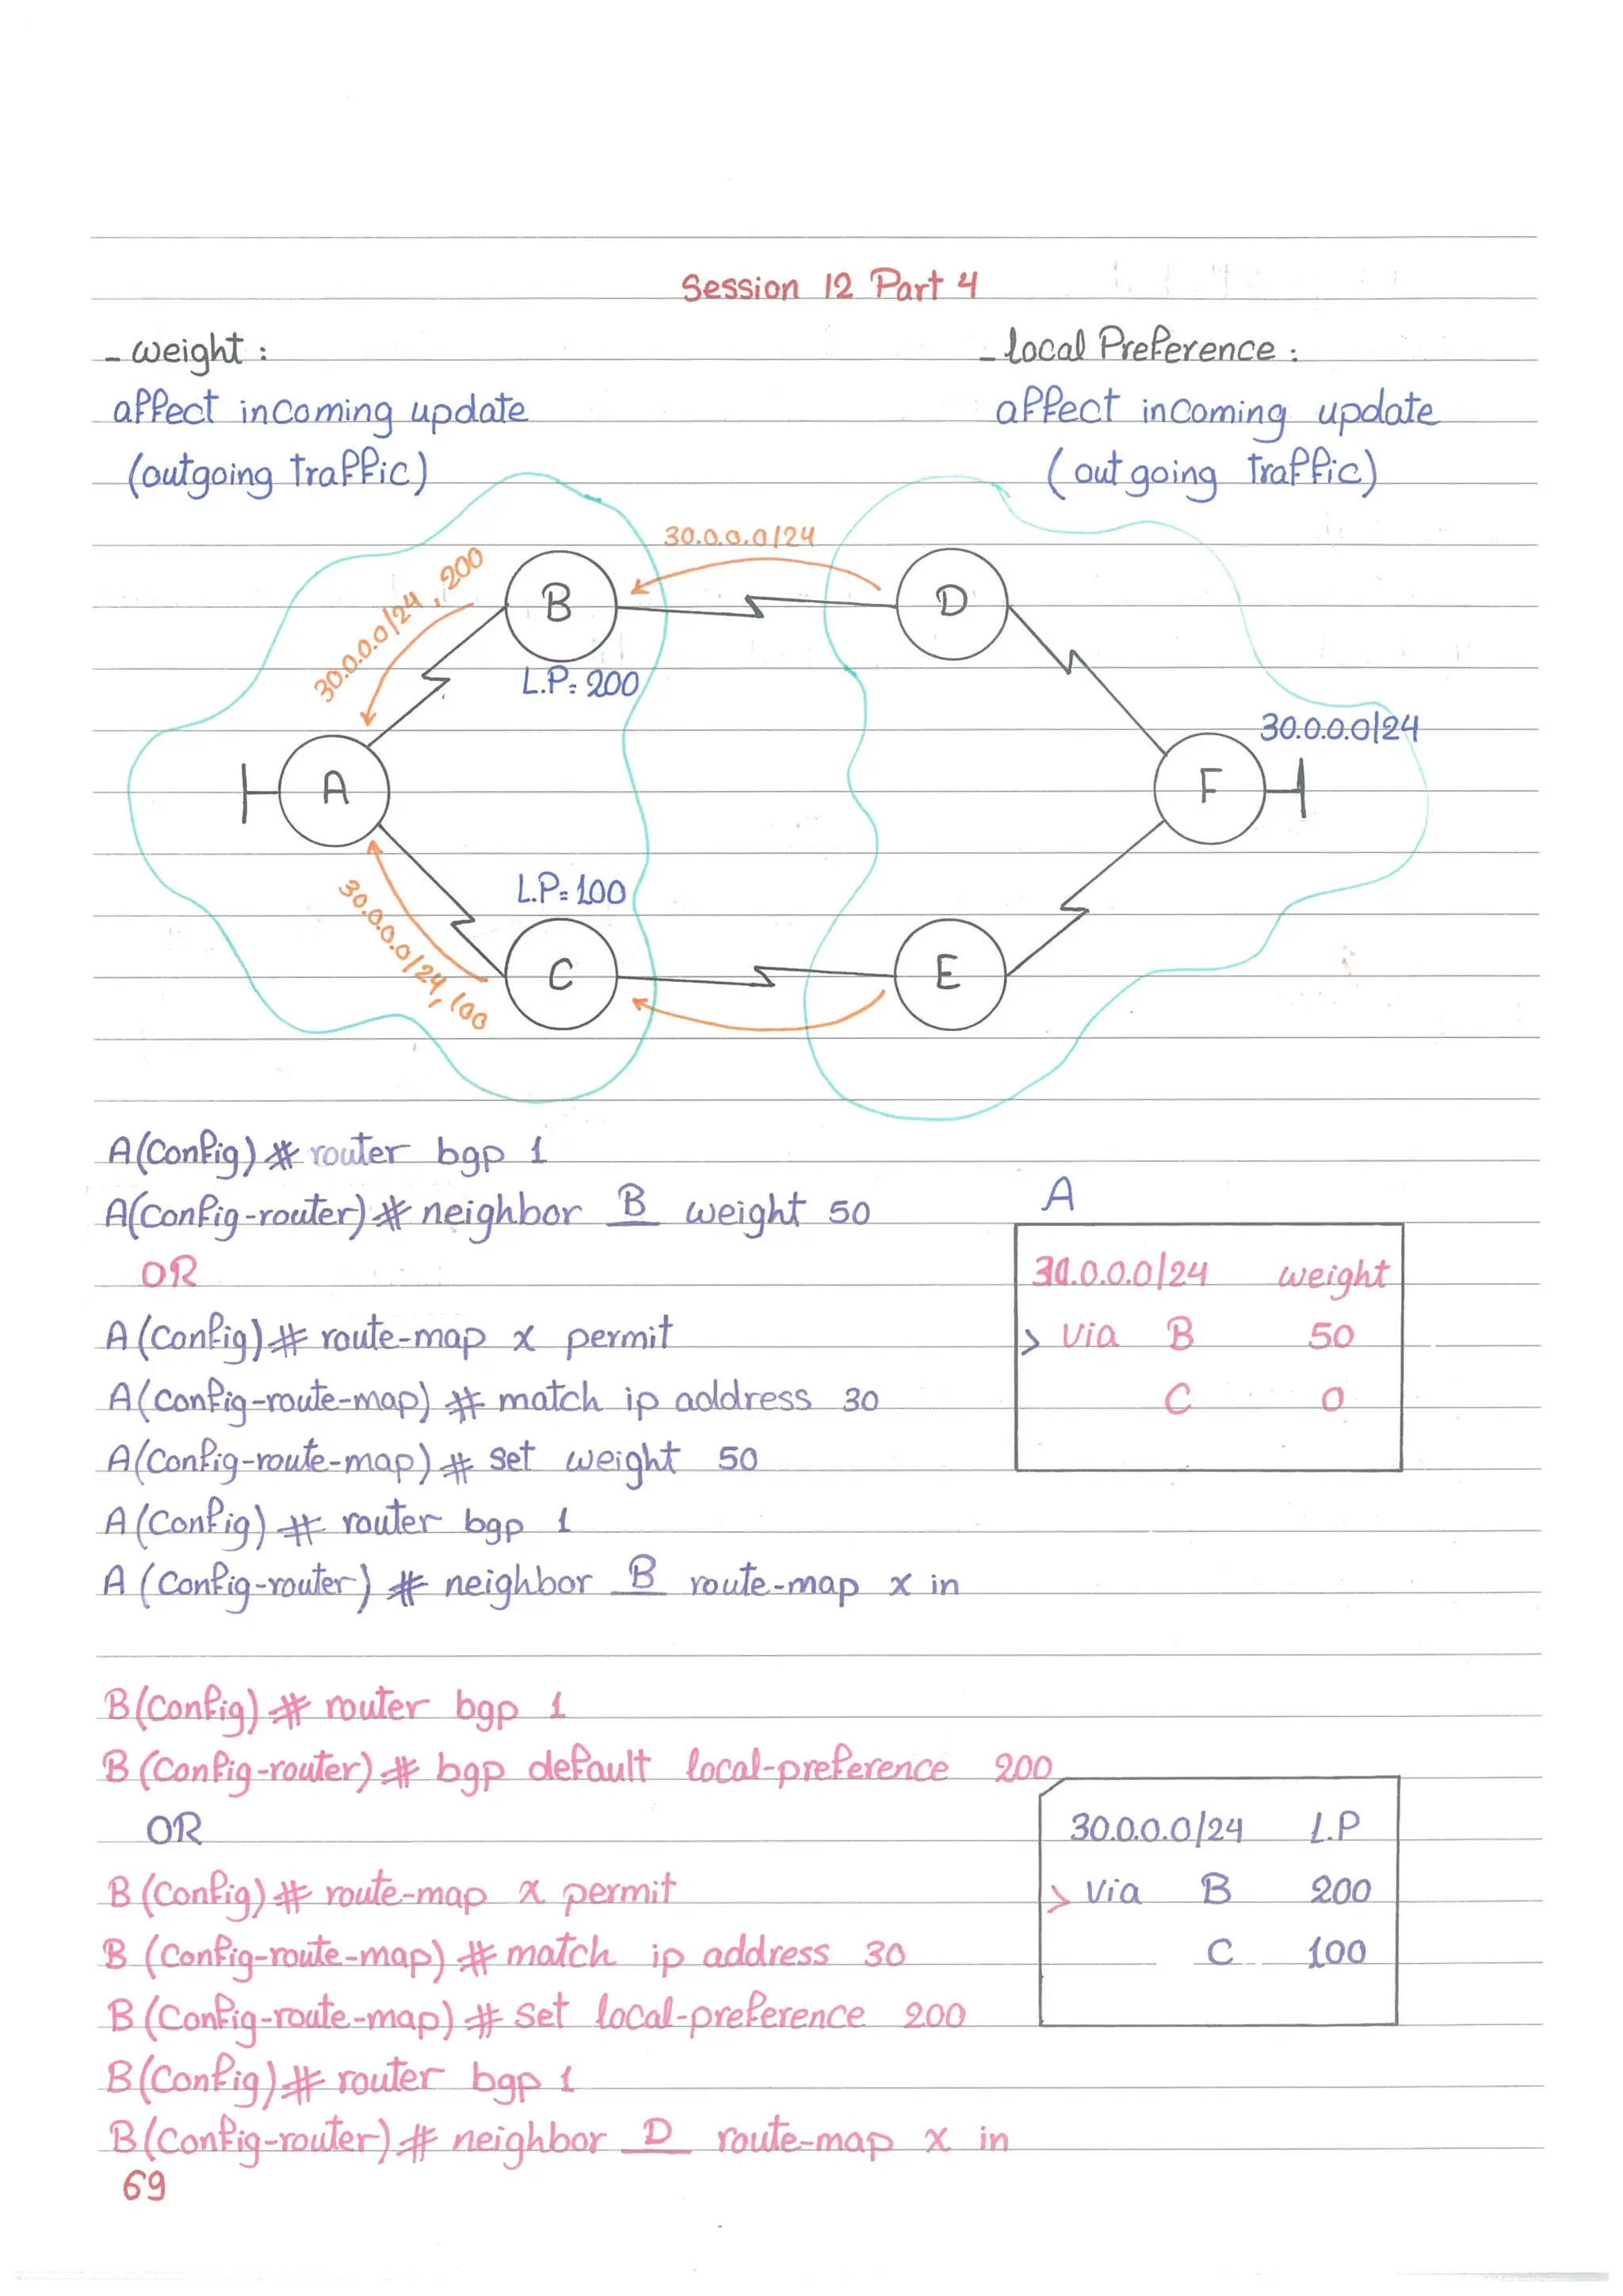 Session 12 Part 4
- weight :
- local Preference :
affect incoming update
affect incoming update
(outgoing traffic)
(outgoing traffic)
30.0.0.0/24
30.0.0.0/24, 200
B
D
L.P: 200
30.0.0.0/24
A
F
L.P= 100
30.0.0.0/24, 100
C
E
A(config)# router bgp 1
A(config-router)# neighbor B weight 50
A
OR
30.0.0.0/24 weight
A(config)# route-map x permit
> via B 50
A(config-route-map)# match ip address 30
C 0
A(config-route-map)# set weight 50
A(config)# router bgp 1
A(config-router)# neighbor B route-map x in
B(config)# router bgp 1
B(config-router)# bgp default local-preference 200
OR
30.0.0.0/24 L.P
B(config)# route-map x permit
> via B 200
B(config-route-map)# match ip address 30
C 100
B(config-route-map)# set local-preference 200
B(config)# router bgp 1
B(config-router)# neighbor D route-map x in
69